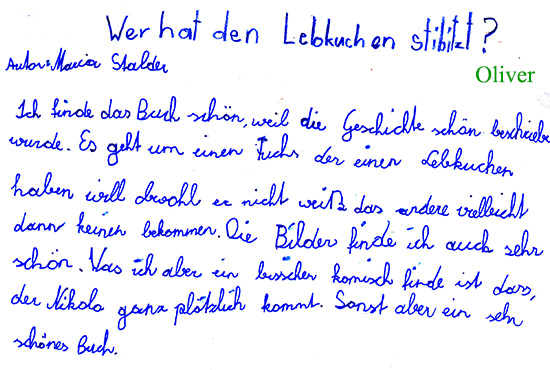 Wer hat den Lebkuchen stibitzt?
Autor: Maria Stalder
Oliver
Ich finde das Buch schön, weil die Geschichte schön beschriebe
wurde. Es geht um einen Fuchs der einen Lebkuchen
haben will obwohl er nicht weiß das andere vielleicht
dann keinen bekommen. Die Bilder finde ich auch sehr
schön. Was ich aber ein bisschen komisch finde ist dass,
der Nikolo ganz plötzlich kommt. Sonst aber ein sehr
schönes Buch.